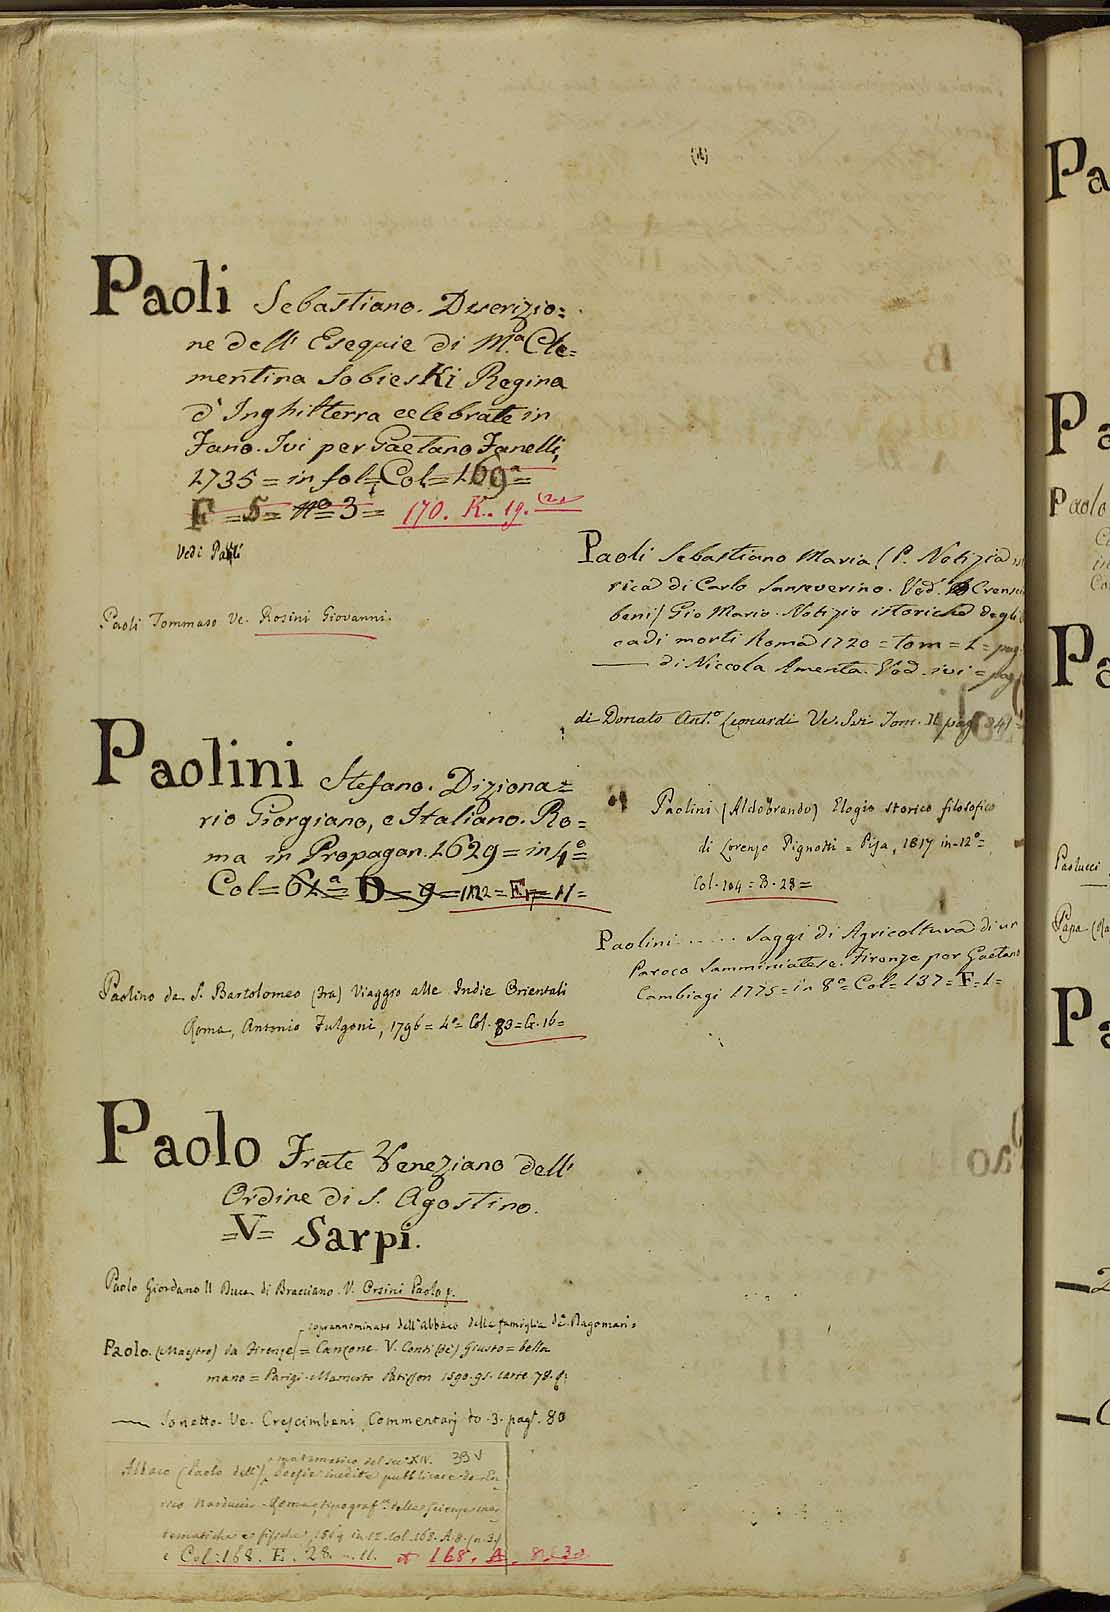 Paoli Sebastiano. Descrizio=
ne dell' Esequie di M.ª Cle=
mentina Sobieski Regina
d'Inghilterra celebrate in
Fano. Ivi per Gaetano Fanelli,
1735 = in fol = Col = 169ª =
F = 5 = nº 3 = 170. K. 19.
Vedi Pauli
Paoli Tommaso Ve. Rosini Giovanni.
Paolini Stefano. Diziona=
rio Giorgiano, e Italiano. Ro=
ma in Propagan. 1629 = in 4º =
Col = 61ª = D = 9 = 112 = E = 11 =
Paolino da S. Bartolomeo (Fra) Viaggio alle Indie Orientali
Roma, Antonio Fulgoni, 1796 = 4º = Col. 83 = G. 16 =
Paolo Frate Veneziano dell'
Ordine di S. Agostino.
=V= Sarpi.
Paolo Giordano II Duca di Bracciano. V. Orsini Paolo
soprannominato dell'Abbaco della famiglia de' Dagomari =
Paolo. (Maestro) da Firenze = Canzone. V. Conti (de') Giusto = bella
mano = Parigi. Mamerto Patisson 1590. carte. 78.
— Sonetto. Ve. Crescimbeni, Commentarj to. 3. pag. 80
matematico del sec. XIV. 39 v
Abbaco (Paolo dell') Poesie inedite pubblicate da En
rico Narducci - Roma, tipograf. delle scienze ma
tematiche e fisiche, 1864 in 12. Col. 168. A. 8. (n. 3)
e Col. 168. E. 28. n. 11. et 168. A. 8
Paoli Sebastiano Maria (P. Notizia
rica di Carlo Sanseverino. Ved. Crescim
beni) Gio Mario. Notizie istoriche degli
cadi morti Roma 1720 = tom = 1 = pag.
— di Niccola Amenta. Ved. ivi = pag
di Donato Ant.º Leonardi Ve. Ivi Tom. II pag
Paolini (Aldobrando) Elogio storico filosofico
di Lorenzo Pignotti = Pisa, 1817 in-12º =
Col. 104 = B. 28 =
Paolini ...... Saggi di Agricoltura di un
Paroco Samminiatese. Firenze per Gaetano
Cambiagi 1775 = in 8º = Col = 137 = F = 1 =
Pa
Pa
Paolo
Pa
Paolucci
Papa
Pa